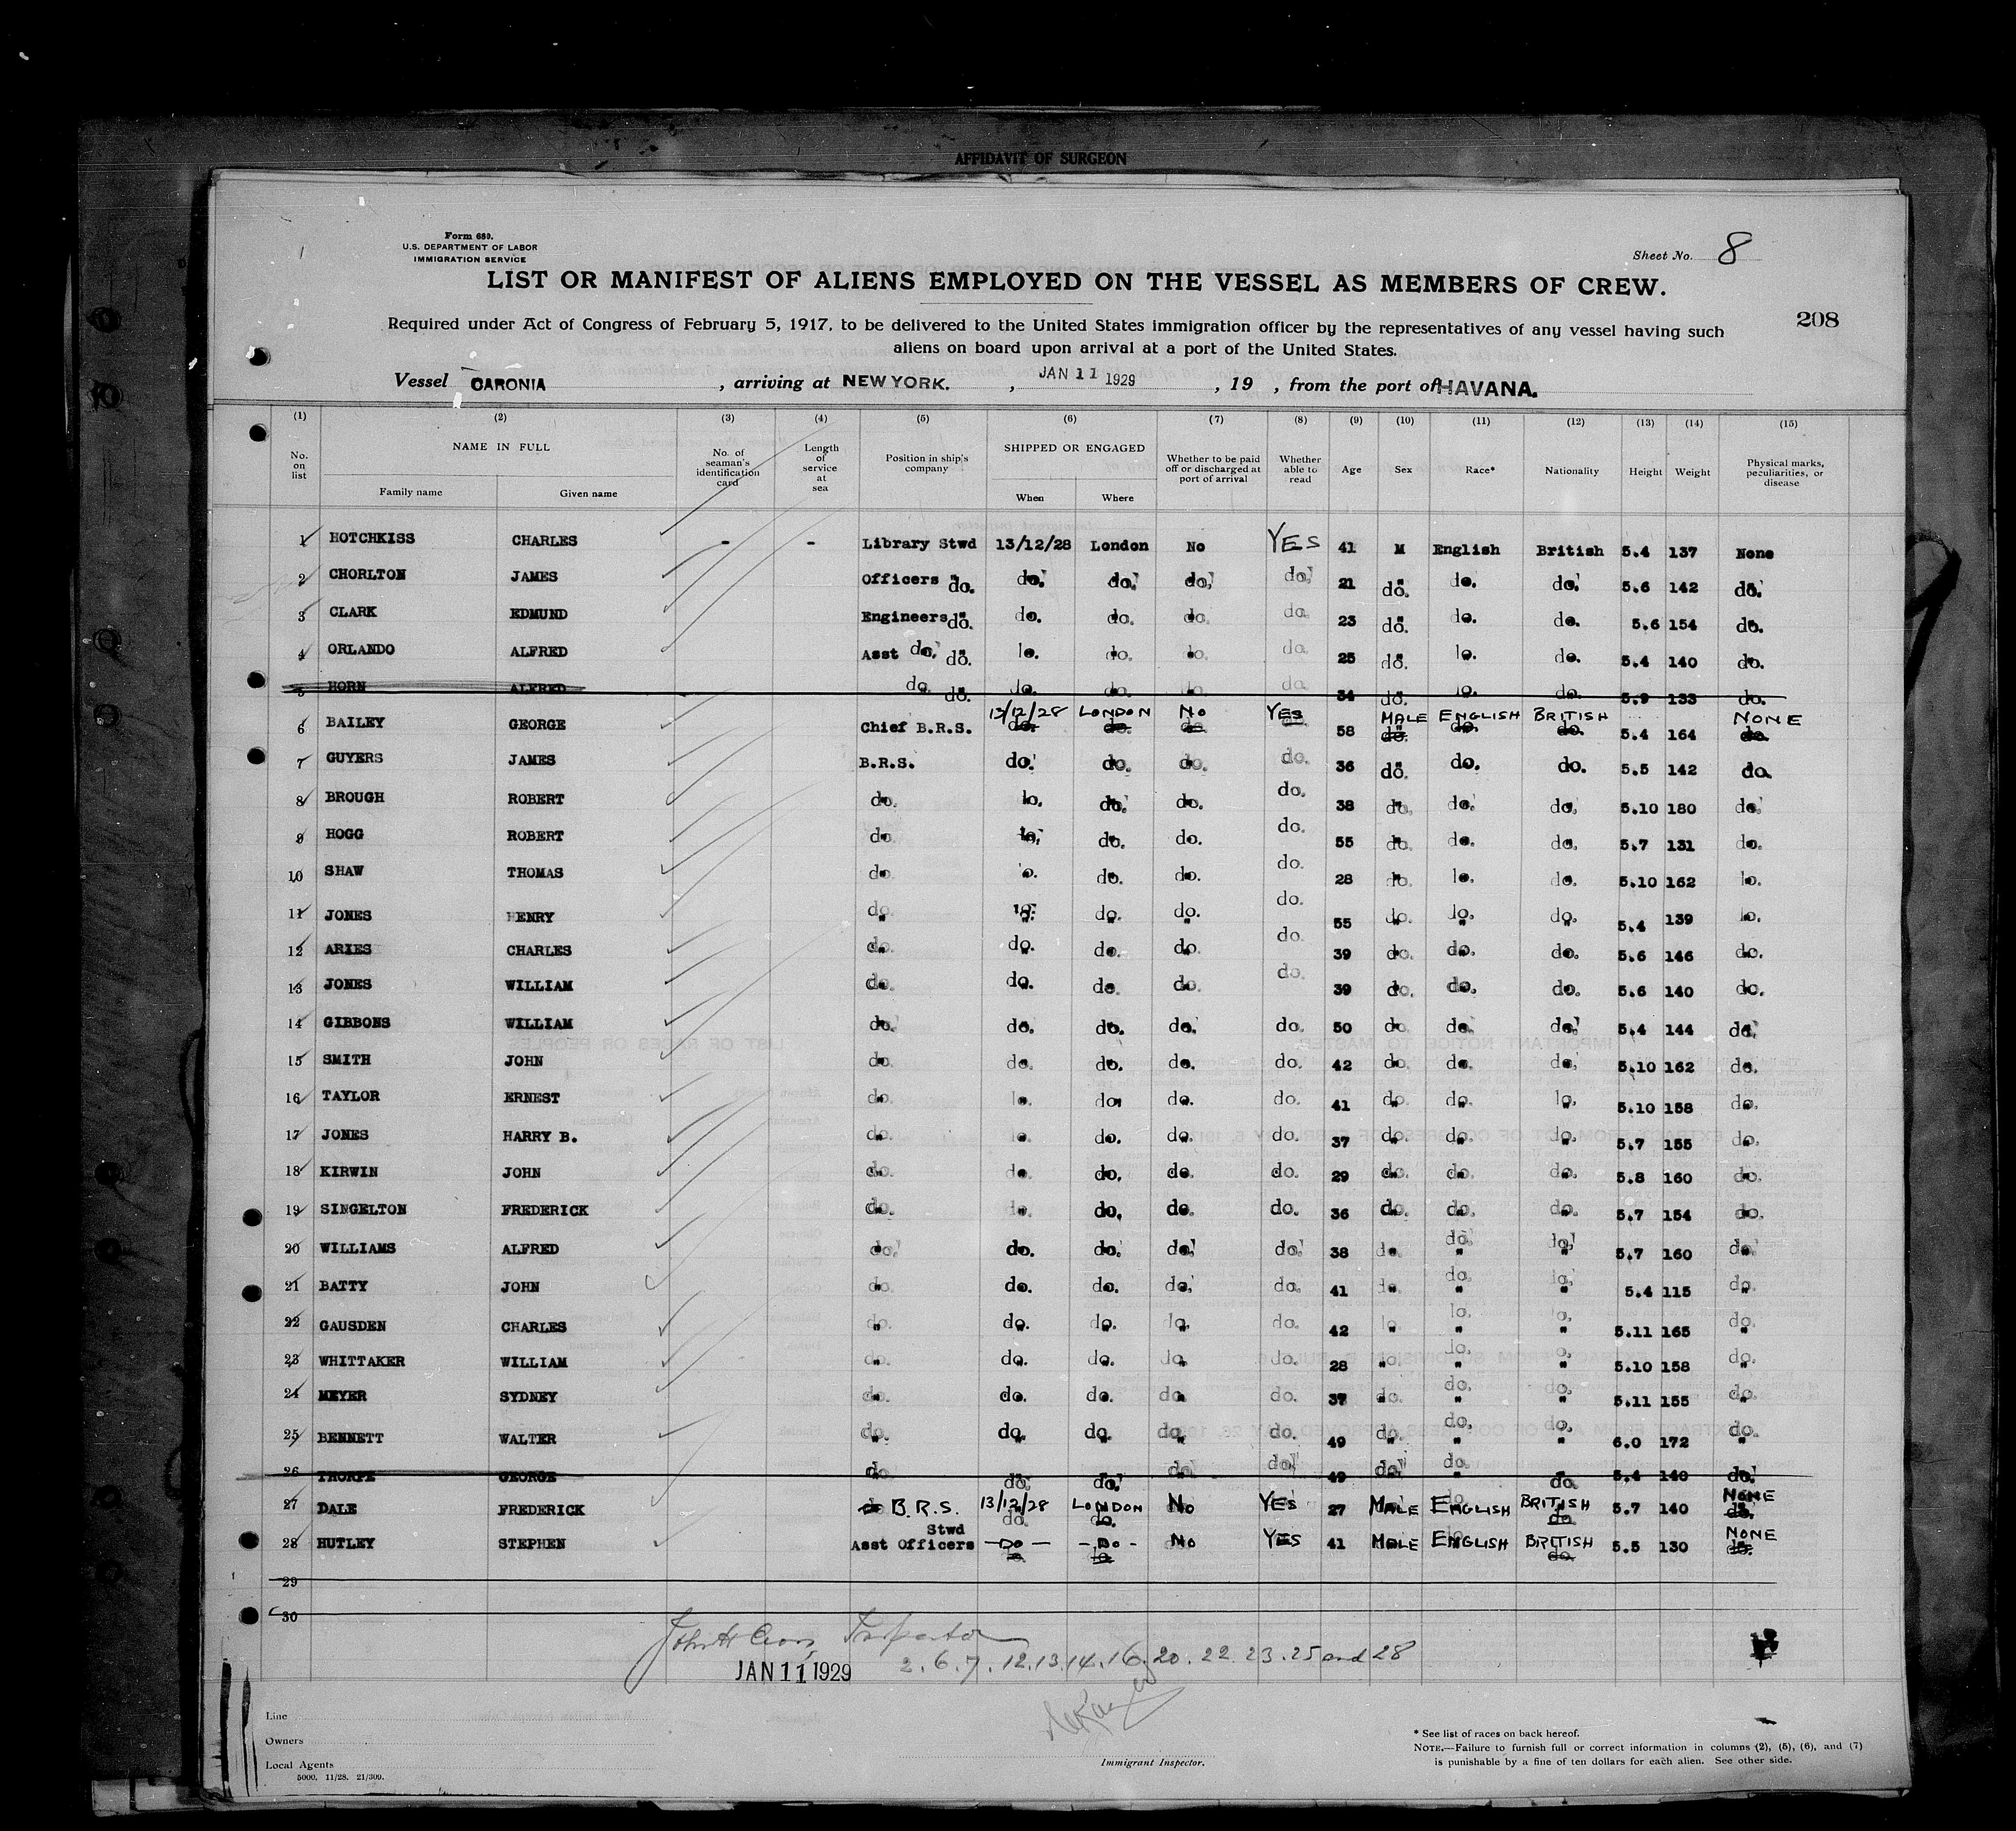 AFFIDAVIT OF SURGEON
Form 680.
U.S. DEPARTMENT OF LABOR
IMMIGRATION SERVICE
Sheet No. 8
LIST OR MANIFEST OF ALIENS EMPLOYED ON THE VESSEL AS MEMBERS OF CREW.
208
Required under Act of Congress of February 5, 1917, to be delivered to the United States immigration officer by the representatives of any vessel having such
aliens on board upon arrival at a port of the United States.
Vessel CARONIA, arriving at NEW YORK., JAN 11 1929, 19 , from the port of HAVANA.
(1) (2) (3) (4) (5) (6) (7) (8) (9) (10) (11) (12) (13) (14) (15)
No. on list NAME IN FULL Family name Given name No. of seaman's identification card Length of service at sea Position in ship's company SHIPPED OR ENGAGED When Where Whether to be paid off or discharged at port of arrival Whether able to read Age Sex Race* Nationality Height Weight Physical marks, peculiarities, or disease
1 HOTCHKISS CHARLES - - Library Stwd 13/12/28 London No YES 41 M English British 5.4 137 None
2 CHORLTON JAMES Officers do. do. do. do. do. 21 do. do. do. 5.6 142 do.
3 CLARK EDMUND Engineers do. do. do. do. do. 23 do. do. do. 5.6 154 do.
4 ORLANDO ALFRED Asst do. do. do. do. do. do. 25 do. do. do. 5.4 140 do.
5 HORN ALFRED do. do. do. do. do. do. 34 do. do. do. 5.9 133 do.
6 BAILEY GEORGE Chief B.R.S. 13/12/28 LONDON NO YES 58 MALE ENGLISH BRITISH 5.4 164 NONE
7 GUYERS JAMES B.R.S. do. do. do. do. 36 do. do. do. 5.5 142 do.
8 BROUGH ROBERT do. do. do. do. do. 38 do. do. do. 5.10 180 do.
9 HOGG ROBERT do. do. do. do. do. 55 do. do. do. 5.7 131 do.
10 SHAW THOMAS do. do. do. do. do. 28 do. do. do. 5.10 162 do.
11 JONES HENRY do. do. do. do. do. 55 do. do. do. 5.4 139 do.
12 ARIES CHARLES do. do. do. do. do. 39 do. do. do. 5.6 146 do.
13 JONES WILLIAM do. do. do. do. do. 39 do. do. do. 5.6 140 do.
14 GIBBONS WILLIAM do. do. do. do. do. 50 do. do. do. 5.4 144 do.
15 SMITH JOHN do. do. do. do. do. 42 do. do. do. 5.10 162 do.
16 TAYLOR ERNEST do. do. do. do. do. 41 do. do. do. 5.10 158 do.
17 JONES HARRY B. do. do. do. do. do. 37 do. do. do. 5.7 155 do.
18 KIRWIN JOHN do. do. do. do. do. 29 do. do. do. 5.8 160 do.
19 SINGELTON FREDERICK do. do. do. do. do. 36 do. do. do. 5.7 154 do.
20 WILLIAMS ALFRED do. do. do. do. do. 38 do. do. do. 5.7 160 do.
21 BATTY JOHN do. do. do. do. do. 41 do. do. do. 5.4 115 do.
22 GAUSDEN CHARLES do. do. do. do. do. 42 do. do. do. 5.11 165 do.
23 WHITTAKER WILLIAM do. do. do. do. do. 28 do. do. do. 5.10 158 do.
24 MEYER SYDNEY do. do. do. do. do. 37 do. do. do. 5.11 155 do.
25 BENNETT WALTER do. do. do. do. do. 49 do. do. do. 6.0 172 do.
26 THORPE GEORGE do. do. do. do. do. 49 do. do. do. 5.4 140 do.
27 DALE FREDERICK do B.R.S. 13/12/28 LONDON NO YES 27 MALE ENGLISH BRITISH 5.7 140 NONE
28 HUTLEY STEPHEN Asst Officers Stwd -DO- -DO- NO YES 41 MALE ENGLISH BRITISH 5.5 130 NONE
29
30
Inspector
2. 6. 7. 12. 13. 14. 16. 20. 22. 23. 25 and 28
JAN 11 1929
Line
Owners
Local Agents
5000. 11/28. 21/309.
Immigrant Inspector.
* See list of races on back hereof.
NOTE.—Failure to furnish full or correct information in columns (2), (5), (6), and (7)
is punishable by a fine of ten dollars for each alien. See other side.